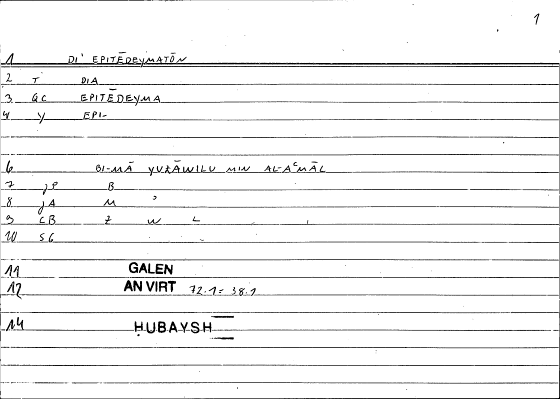 1
1 DI' EPITĒDEYMATŌN
2 T DIA
3 GC EPITĒDEYMA
4 Y EPI-
6 BI-MĀ YUZĀWILU MIN AL-AʿMĀL
7 JP B
8 JA M
9 CB Z W L
10 SG
11 GALEN
12 AN VIRT 72.1 = 38.1
14 ḤUBAYSH